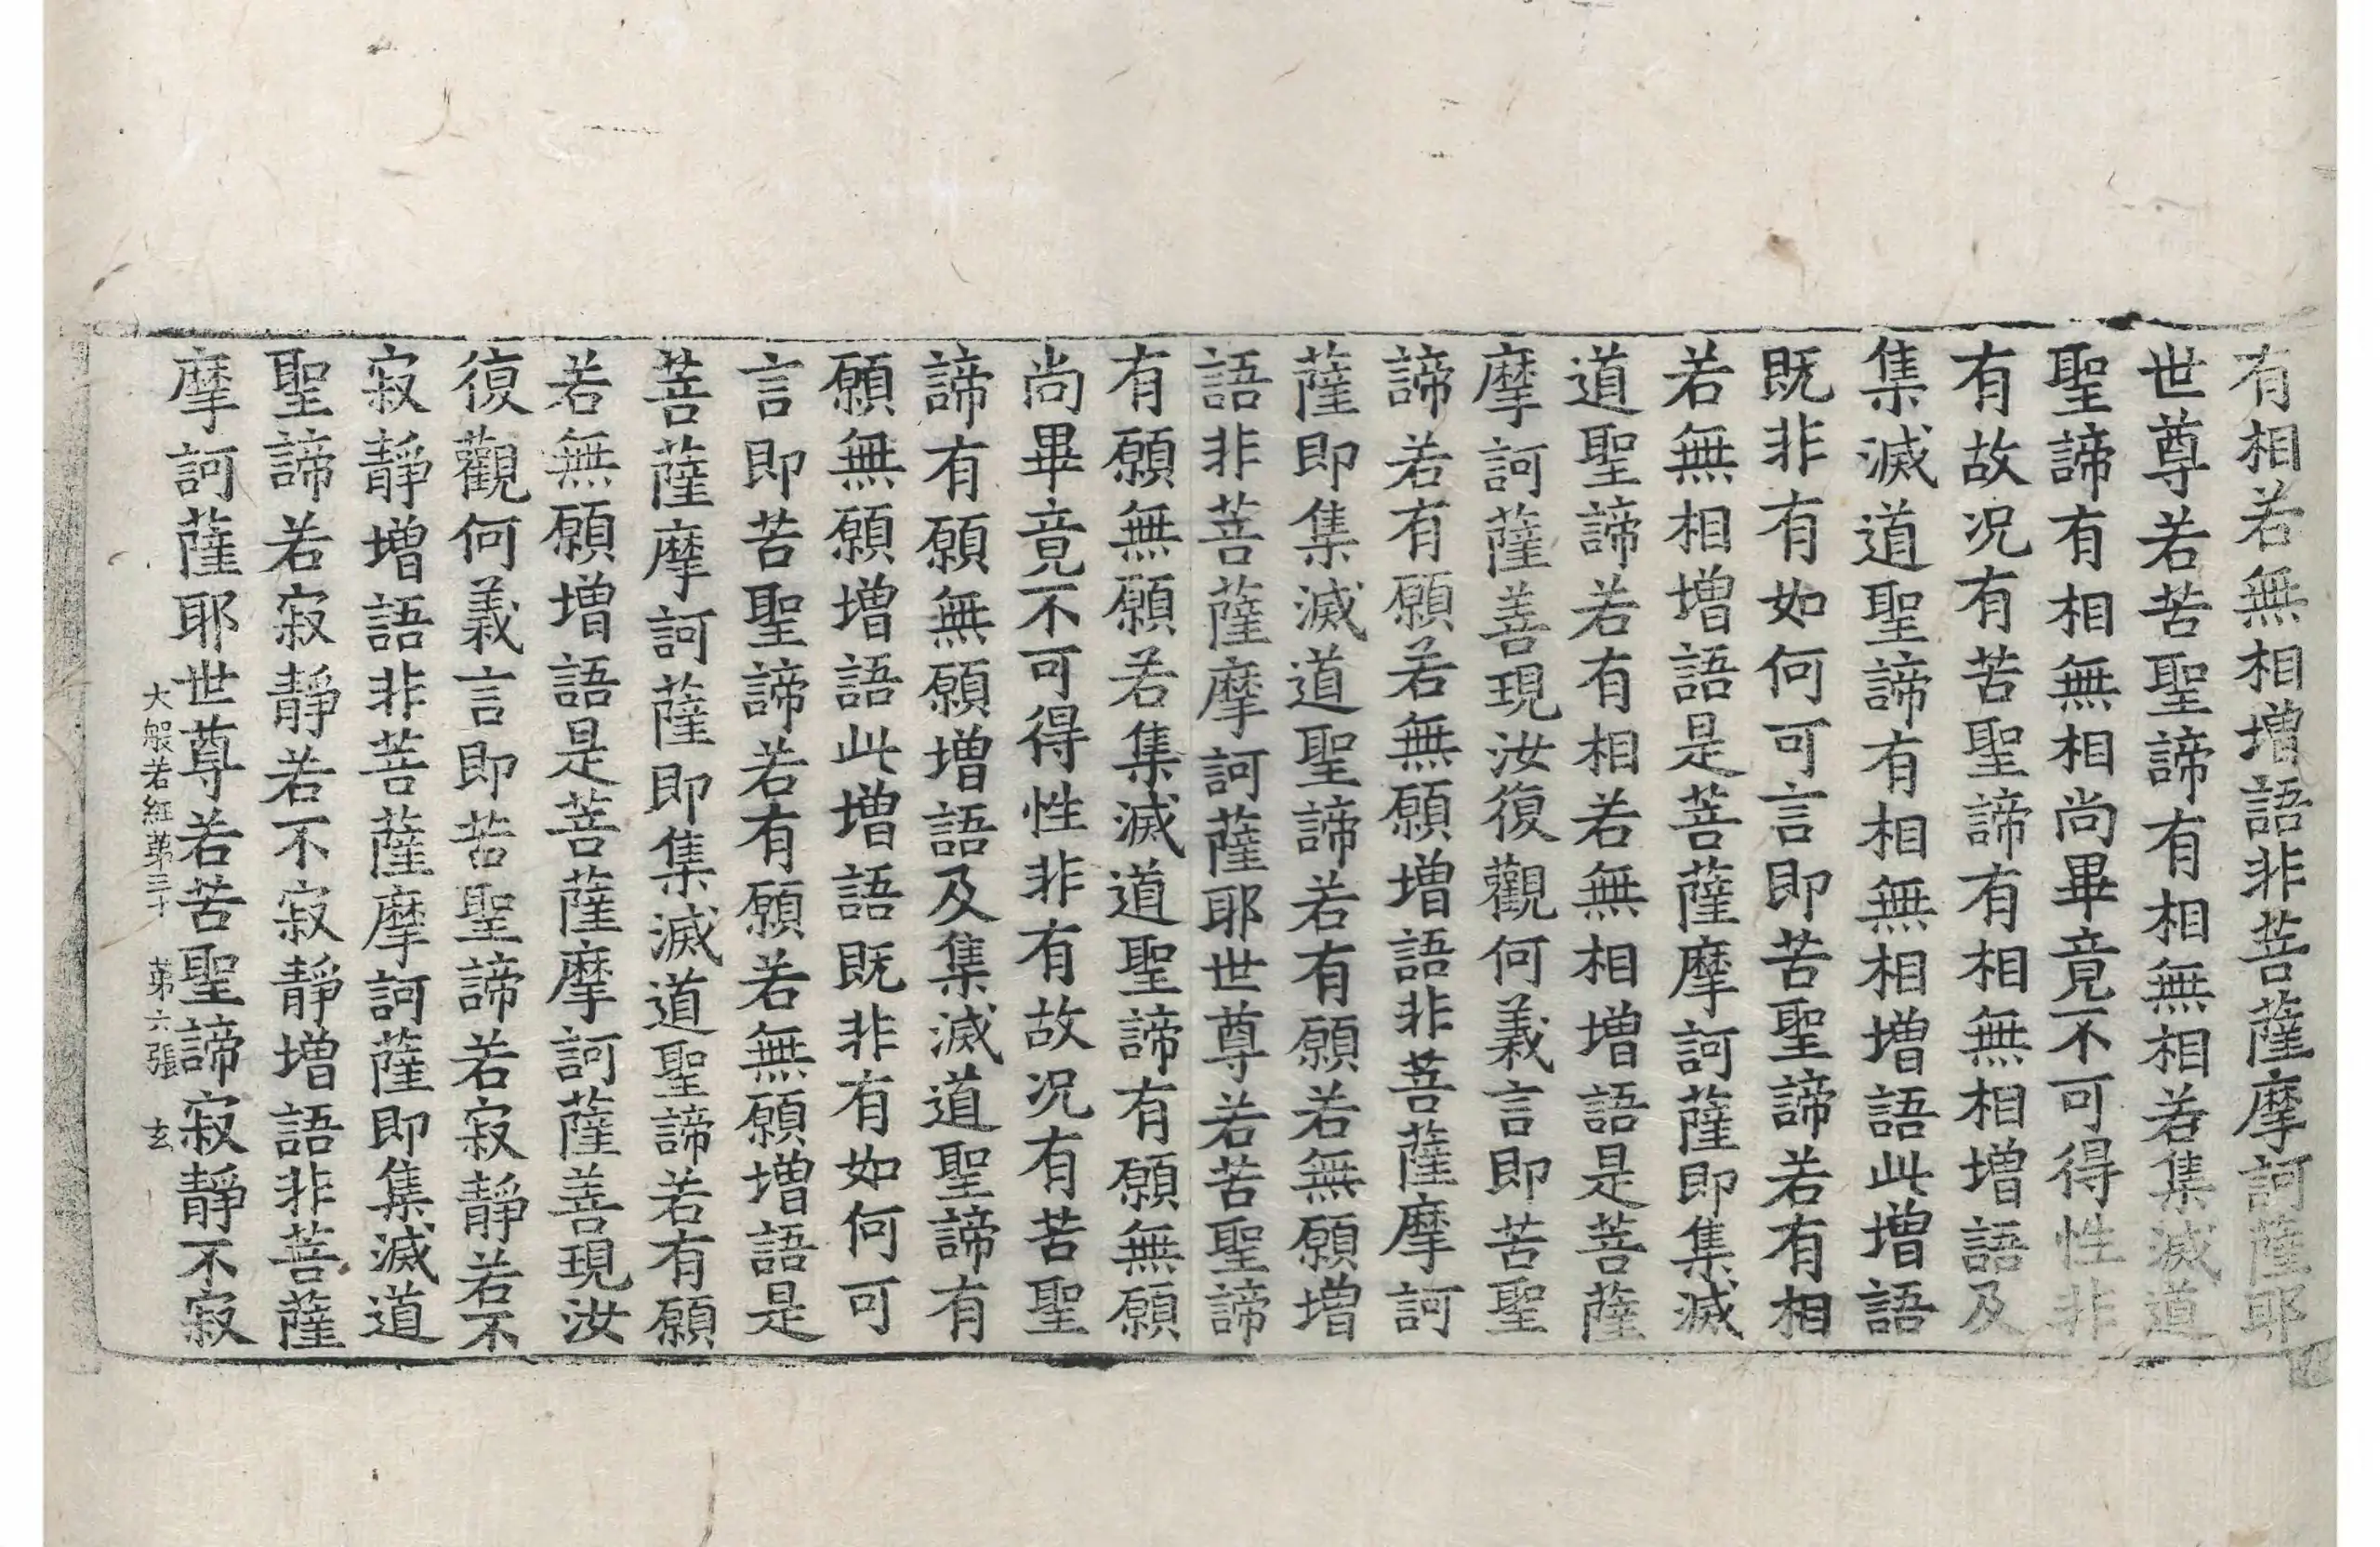 有相若無相增語非菩薩摩訶薩耶
世尊若苦聖諦有相無相若集滅道
聖諦有相無相尚畢竟不可得性非
有故況有苦聖諦有相無相增語及
集滅道聖諦有相無相增語此增語
既非有如何可言即苦聖諦若有相
若無相增語是菩薩摩訶薩即集滅
道聖諦若有相若無相增語是菩薩
摩訶薩善現汝復觀何義言即苦聖
諦若有願若無願增語非菩薩摩訶
薩即集滅道聖諦若有願若無願增
語非菩薩摩訶薩耶世尊若苦聖諦
有願無願若集滅道聖諦有願無願
尚畢竟不可得性非有故況有苦聖
諦有願無願增語及集滅道聖諦有
願無願增語此增語既非有如何可
言即苦聖諦若有願若無願增語是
菩薩摩訶薩即集滅道聖諦若有願
若無願增語是菩薩摩訶薩善現汝
復觀何義言即苦聖諦若寂靜若不
寂靜增語非菩薩摩訶薩即集滅道
聖諦若寂靜若不寂靜增語非菩薩
摩訶薩耶世尊若苦聖諦寂靜不寂
大般若經第三十 第六張 玄